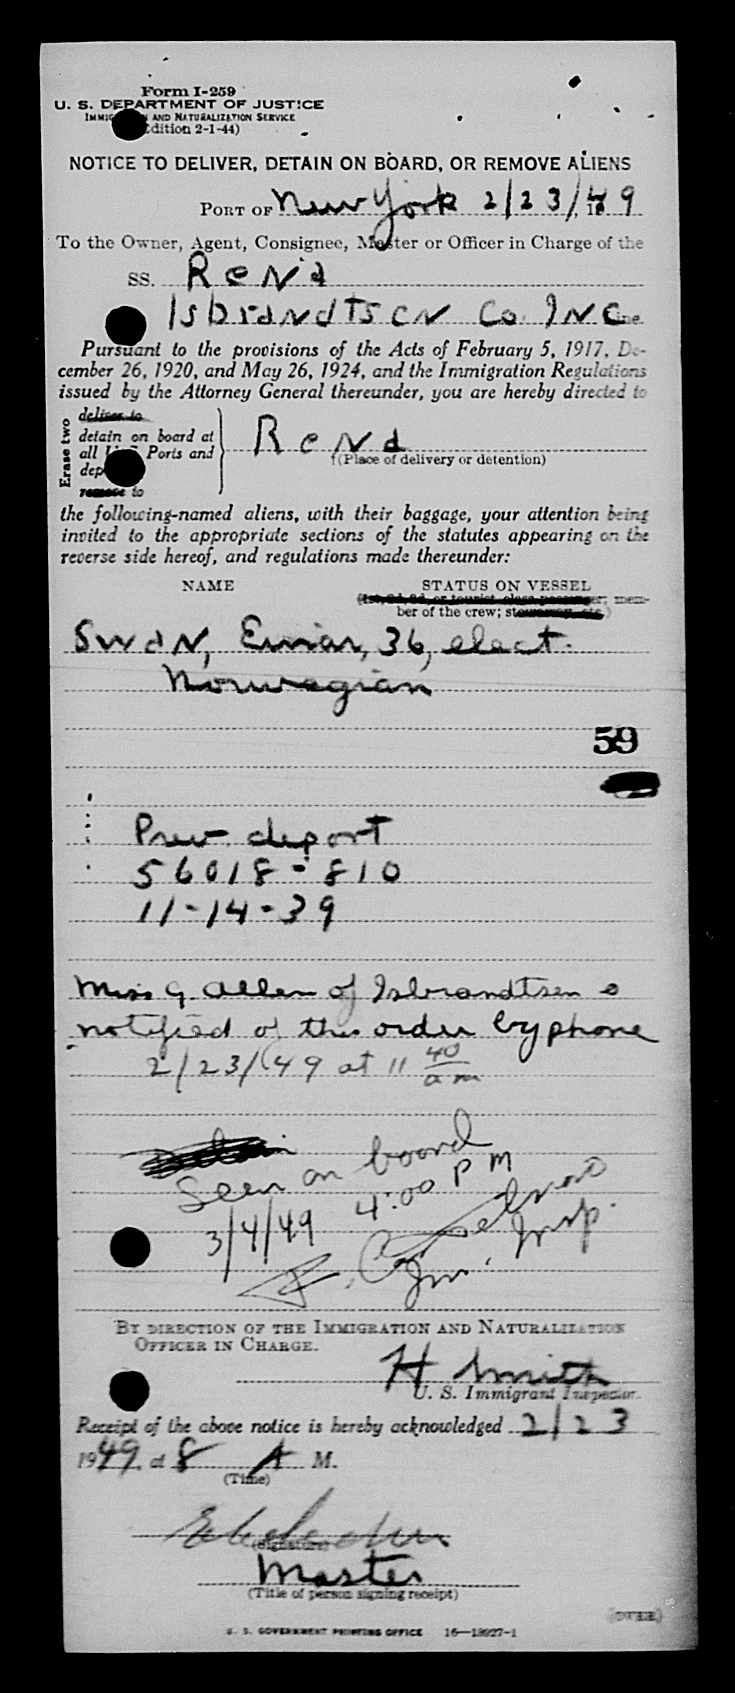 Form I-259
U. S. DEPARTMENT OF JUSTICE
IMMIGRATION AND NATURALIZATION SERVICE
(Edition 2-1-44)
NOTICE TO DELIVER, DETAIN ON BOARD, OR REMOVE ALIENS
PORT OF New York 2/23/49
To the Owner, Agent, Consignee, Master or Officer in Charge of the
SS. Rena
Isbrandtsen Co. Inc Line.
Pursuant to the provisions of the Acts of February 5, 1917, De-
cember 26, 1920, and May 26, 1924, and the Immigration Regulations
issued by the Attorney General thereunder, you are hereby directed to
Erase two
deliver to
detain on board at
all U. S. Ports and
dep
remove to
Rena
(Place of delivery or detention)
the following-named aliens, with their baggage, your attention being
invited to the appropriate sections of the statutes appearing on the
reverse side hereof, and regulations made thereunder:
NAME STATUS ON VESSEL
(1st, 2d, 3d, or tourist class passenger; mem-
ber of the crew; stowaway, etc.)
Swan, Einar, 36, elect.
Norwegian
59
Prev. deport
56018-810
11-14-39
Miss G. Allen of Isbrandtsen
notified of this order by phone
2/23/49 at 11 40 am
Seen on board
3/4/49 4:00 PM
Imm. Insp.
BY DIRECTION OF THE IMMIGRATION AND NATURALIZATION
OFFICER IN CHARGE.
H Smith
U. S. Immigrant Inspector.
Receipt of the above notice is hereby acknowledged 2/23
1949, at 8 A M.
(Time)
(Signature)
Master
(Title of person signing receipt)
(OVER)
U. S. GOVERNMENT PRINTING OFFICE 16—18927-1